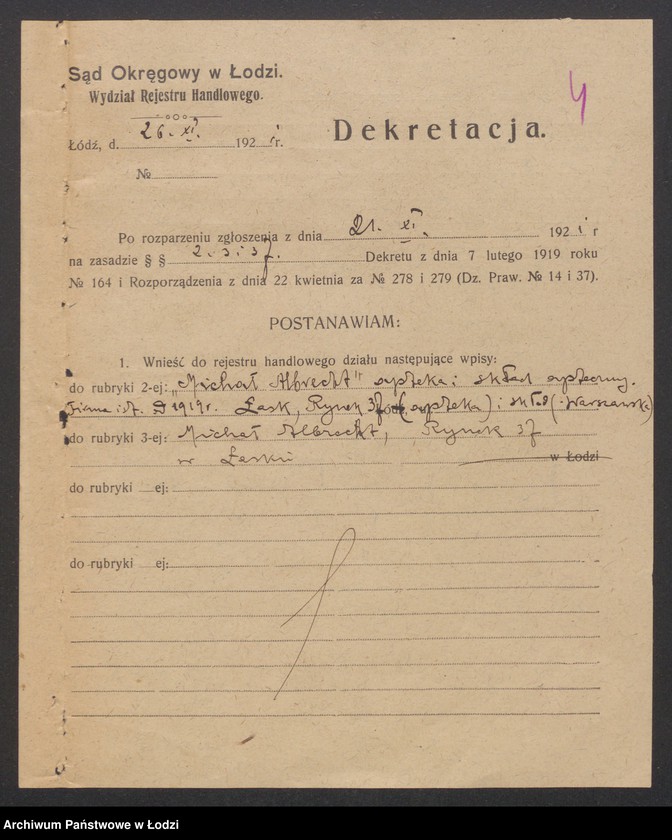 Sąd Okręgowy w Łodzi.
Wydział Rejestru Handlowego.
4
Dekretacja.
Łódź, d. 26. XI. 192 1 r.
№
Po rozparzeniu zgłoszenia z dnia 21. XI. 192 1 r
na zasadzie § § 2. 3 i 37. Dekretu z dnia 7 lutego 1919 roku
№ 164 i Rozporządzenia z dnia 22 kwietnia za № 278 i 279 (Dz. Praw. № 14 i 37).
POSTANAWIAM:
1. Wnieść do rejestru handlowego działu następujące wpisy:
do rubryki 2-ej: „Michał Albrecht" apteka i skład apteczny.
Firma ist. 1919 r. Łask, Rynek 37 (apteka) i skład (Warszawska)
do rubryki 3-ej: Michał Albrecht, Rynek 37
w Łasku w Łodzi
do rubryki ej:
do rubryki ej:
Archiwum Państwowe w Łodzi